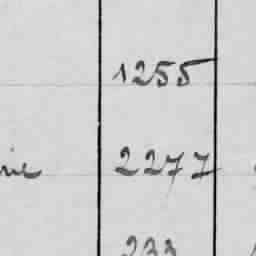 1255
2277
233